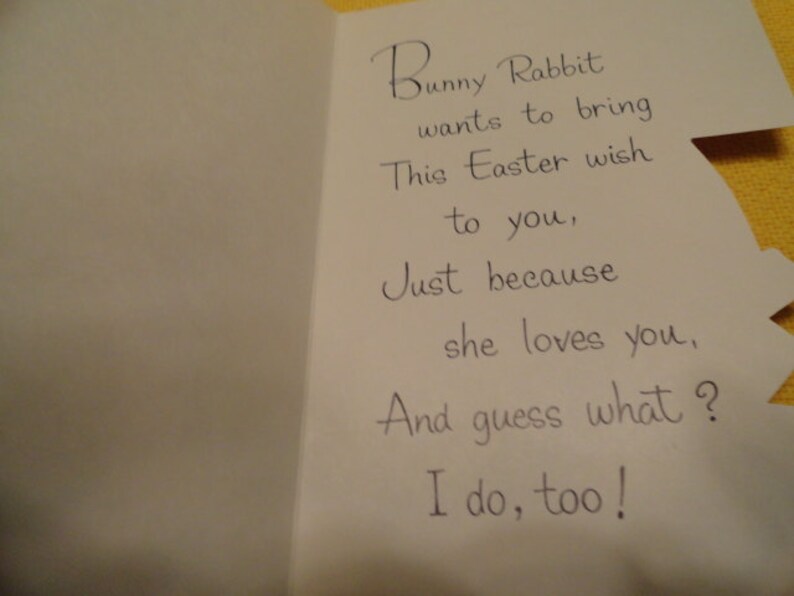 Bunny Rabbit
wants to bring
This Easter wish
to you,
Just because
she loves you,
And guess what?
I do, too!